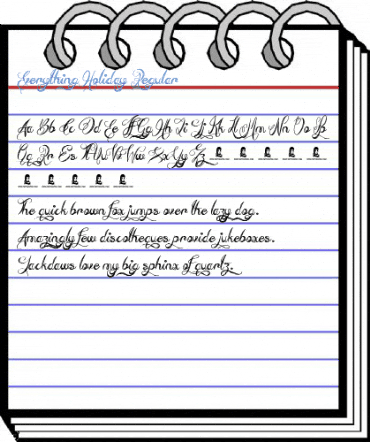 Everything Holiday Regular
Aa Bb Cc Dd Ee Ff Gg Hh Ii Jj Kk Ll Mm Nn Oo Pp
Qq Rr Ss Tt Uu Vv Ww Xx Yy Zz
The quick brown fox jumps over the lazy dog.
Amazingly few discotheques provide jukeboxes.
Jackdaws love my big sphinx of quartz.